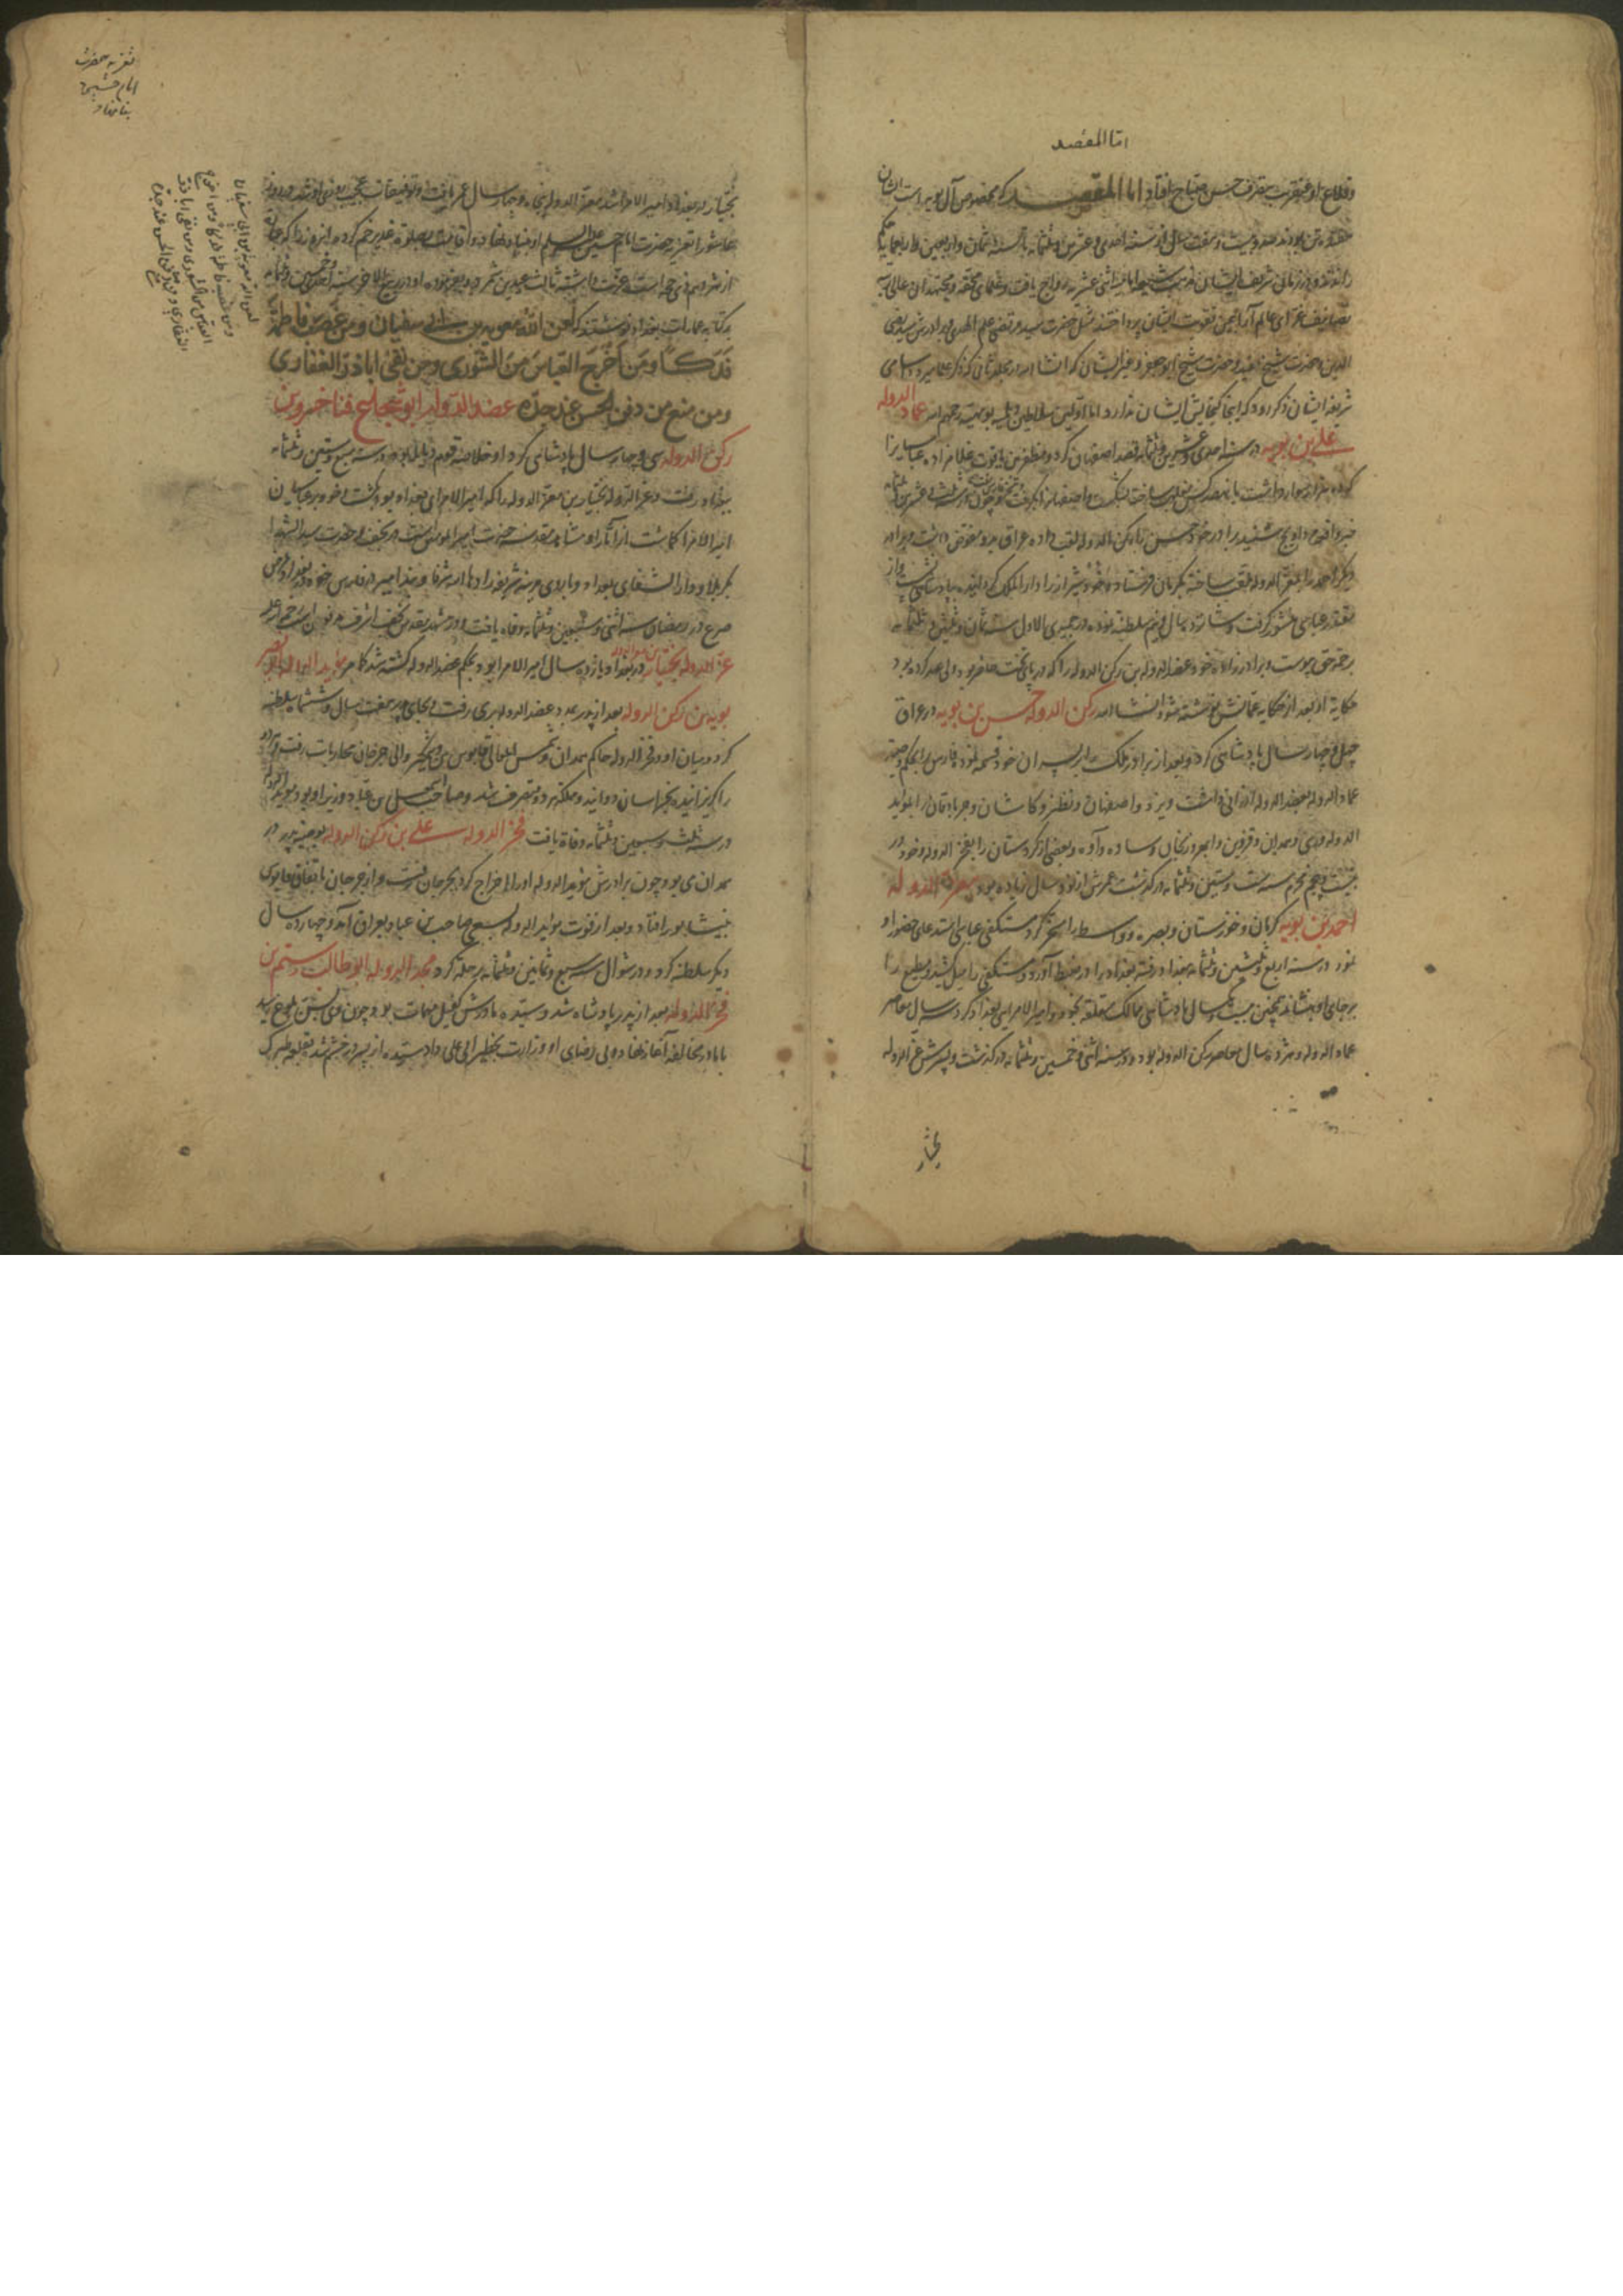 اما المقصد
وقلاع او عنقریب بتصرف حسن صباح افتاد اما المقصد که مخصوص آل بویه است ایشان
هفده تن بودند صد و بیست و هفت سال از سنه احدی و عشرین و ثلثمائه تا سنه ثمان و اربعین و اربعمایه حکم
راندند و در زمان شریف ایشان مذهب شیعه امامیه اثنی عشریه رواج یافت و علمای محققه و مجتهدان عالی
تصانیف غرای عالم آرا بیمن تقویت ایشان پرداختند مثل حضرت سید مرتضی علم الهدی و برادرش سید رضی
الدین و حضرت شیخ مفید و حضرت شیخ ابو جعفر و غیر ایشان که انشا الله در مجلد ثانی که ذکر
شریفه ایشان ذکر رود که اینجا گنجایش ایشان ندارد اما اولین سلاطین دیلمه بویهیه رحمهم الله عماد الدوله
علی بن بویه در سنه احدی و عشرین و ثلثمائه قصد اصفهان کرد و مظفر بن یاقوت غلامزاده عباسیه را
که ده هزار سوار داشت با نهصد کس
خبر واقعه مرداویج شنید برادر خود حسن را رکن الدوله لقب داده عراق بدو مفوض داشت و برادر
دیگر احمد را معز الدوله ملقب ساخته بکرمان فرستاد و خود شیراز را دار الملک گردانیده بپادشاهی نشست و از
عباسی منشور گرفت و شانزده سال و نیم سلطنة نموده در جمیدی الاول سنه ثمان و ثلثین و ثلثمائه
برحمة حق پیوست و برادرزاده خود عضد الدوله بن رکن الدوله را که در پای تخت حاضر بود ولی عهد کرده بود
حکایة او بعد از حکایه عمانش نوشته شود انشا الله رکن الدوله حسن بن بویه در عراق
چهل و چهار سال پادشاهی کرد و بعد از برادر ملک را بر پسران خود قسمة نمود فارس را بحکم وصیة
عماد الدوله بعضد الدوله ارزانی داشت و یزد و اصفهان و نطنز و کاشان و جربادقان را بموید
الدوله و ری و همدان و قزوین و ابهر و زنجان و ساوه و آوه و بعضی از کردستان را بفخر الدوله و خود در
بیست و پنجم محرم سنه ست و ستین و ثلثمائه درگذشت عمرش از نود سال زیاده بود معز الدوله
احمد بن بویه کرمان و خوزستان و بصره و واسط را مسخر کرد مستکفی عباسی استدعای حضور او
نمود در سنه اربع و ثلثین و ثلثمائه ببغداد رفته بغداد را در ضبط آورد و مستکفی را میل کشید و مطیع را
برجای او نشاند همچنین بیست و سال پادشاهی ممالک متعلقه بخود و امیر الامرایی بغداد کرد سه سال معاصر
عماد الدوله و هژده سال معاصر رکن الدوله بود و در سنه اثنی و خمسین و ثلثمائه درگذشت و پسرش عز الدوله
بختیار
تعزیه حضرت
امام حسین
بنا نهاد
بختیار در بغداد امیر الامرا شد معز الدوله پنجاه و چهار سال عمر یافت و توفیقات عجیب روزی او شد و در روز
عاشورا تعزیه حضرت امام حسین علیه السلم او بنیاد نهاد و اقامت بصلوة غدیر خم کرده
از هژدهم ذی حجه است
بر کتابه عمارات بغداد نوشتند که لعن الله معویة بن ابی سفیان و من غصب فاطمة
فدکا و من اخرج العباس من الشوری و من نفی اباذر الغفاری
و من منع من دفن الحسن عند جده عضد الدوله ابو شجاع فناخسرو بن
رکن الدوله سی و چهار سال پادشاهی کرد او خلاصه قوم دیالمه بود در سنه سبع و ستین و ثلثمائه
ببغداد رفت و عز الدوله بختیار بن معز الدوله را که امیر الامرای بغداد بود بکشت و خود بر عباسیان
امیر الامرا گشت از آثار او مشاهد مقدسه حضرت امیر المومنین است در نجف و حضرت سید الشهدا
بکربلا و دار الشفای بغداد و باروی مدینه شریفه زادها الله شرفا و بند امیر در فارس
صرع در رمضان سنه اثنی و سبعین و ثلثمائه وفاة یافت و در مشهد مقدس نجف اشرف مدفون است
عز الدوله بختیار بن معز الدوله در بغداد یازده سال امیر الامرا بود و بحکم عضد الدوله کشته شد موید الدوله ابو نصر
بویه بن رکن الدوله بعد از پدر بمدد عضد الدوله بری رفت و بجای پدر هفت سال و شش ماه سلطنة
کرد و میان او و فخر الدوله حاکم همدان و شمس المعالی قابوس بن وشمگیر والی جرجان محاربات رفت و
را گریزانیده بخراسان دوانید و مملکة هر دو متصرف شد و صاحب اسمعیل بن عباد وزیر او بود موید الدوله
در سنه ثلث و سبعین و ثلثمائه وفاة یافت فخر الدوله علی بن رکن الدوله بوصیة پدر در
همدان می بود و چون برادرش موید الدوله او را اخراج کرد بجرجان رفت و از جرجان باتفاق قابوس
بنیشابور افتاد و بعد از فوت موید الدوله بسعی صاحب بن عباد بعراق آمد و چهارده سال
دیگر سلطنة کرد و در شوال سنه سبع و ثمانین و ثلثمائه رحلة کرد مجد الدوله ابو طالب رستم بن
فخر الدوله بعد از پدر پادشاه شد و سیده مادرش کفیل مهمات بود و چون بسن بلوغ رسید
با مادر مخالفة آغاز نهاد و بی رضای او وزارت بخطیر ابی علی داد سیده از پسر در خشم شد بقلعه طبرک
لعن الله معویة بن ابی سفیان
و من غصب فاطمة فدکا و من اخرج
العباس من الشوری و من نفی اباذر
الغفاری و من منع دفن الحسن عند جده